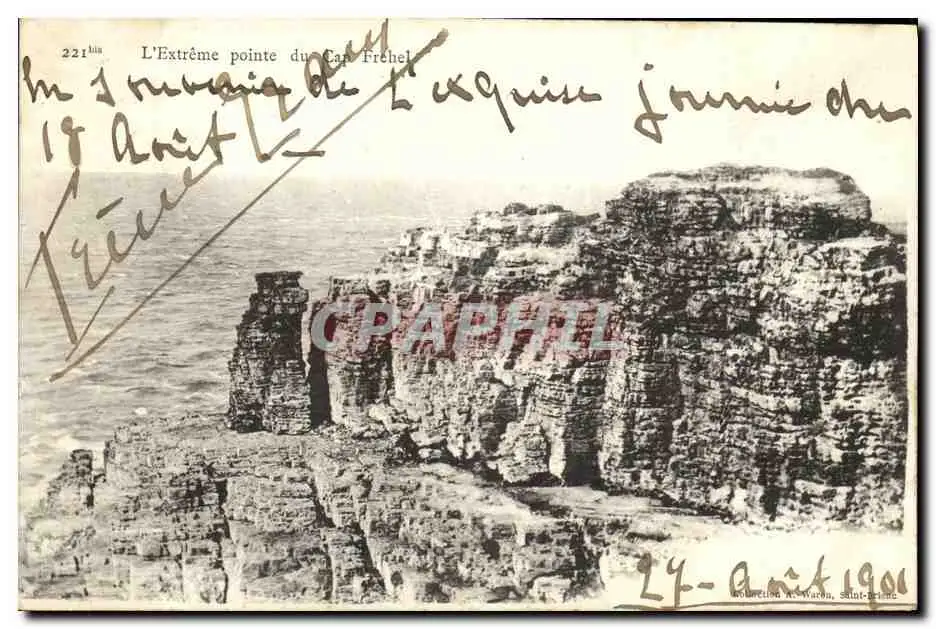 221bis L'Extrême pointe du Cap Fréhel
En souvenir de l'exquise journée du
18 Août -
CPAPHIL
27 - Août 1901
Collection A. Waron, Saint-Brieuc